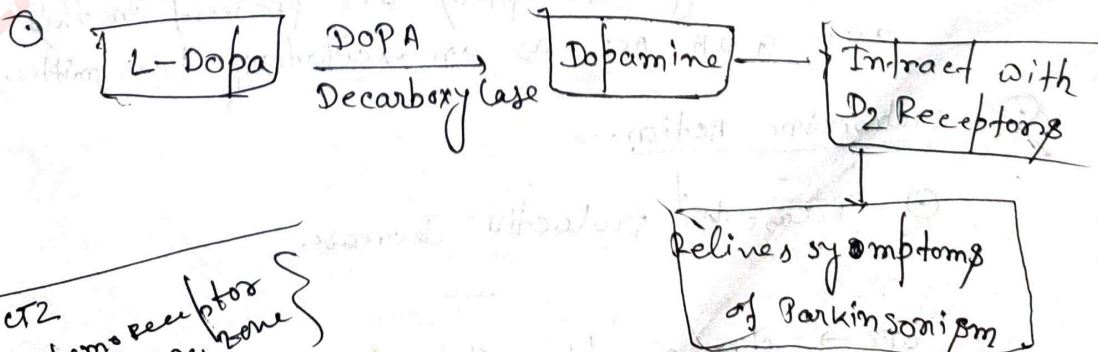 L-Dopa
DOPA
Decarboxylase
Dopamine
Intract with
D2 Receptors
Relives symptoms
of Parkinsonism
CTZ
receptor
zone